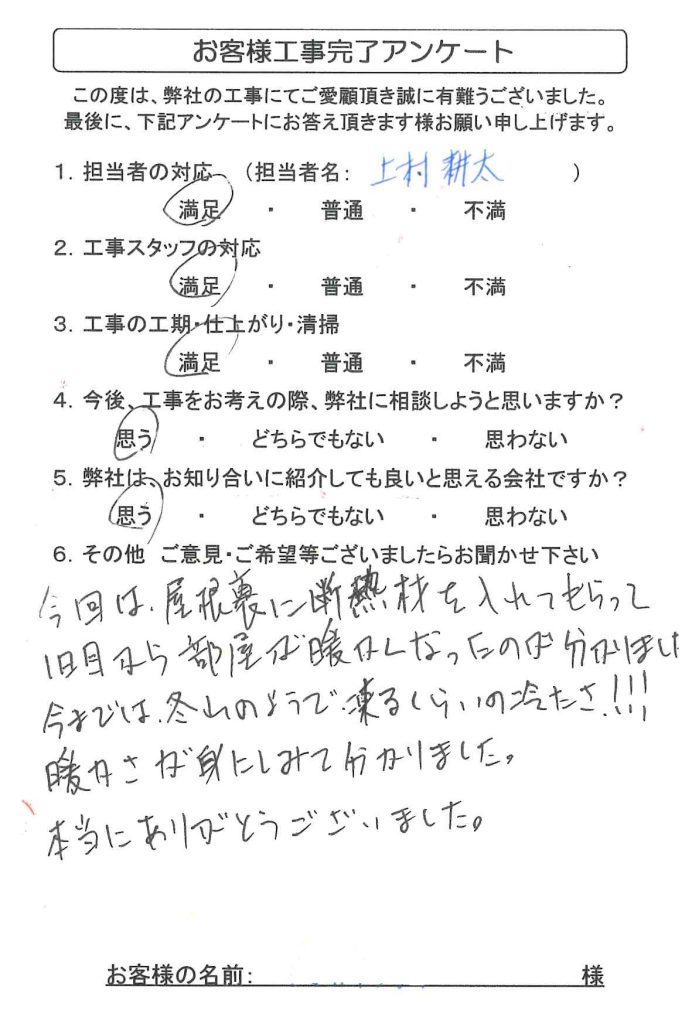 お客様工事完了アンケート
この度は、弊社の工事にてご愛顧頂き誠に有難うございました。
最後に、下記アンケートにお答え頂きます様お願い申し上げます。
1．担当者の対応　（担当者名：　上村 耕太　）
満足　・　普通　・　不満
2．工事スタッフの対応
満足　・　普通　・　不満
3．工事の工期・仕上がり・清掃
満足　・　普通　・　不満
4．今後、工事をお考えの際、弊社に相談しようと思いますか？
思う　・　どちらでもない　・　思わない
5．弊社は、お知り合いに紹介しても良いと思える会社ですか？
思う　・　どちらでもない　・　思わない
6．その他　ご意見・ご希望等ございましたらお聞かせ下さい
今回は、屋根裏に断熱材を入れてもらって
1日目から部屋が暖かくなったのが分かりまし
今までは、冬山のようで凍るくらいの冷たさ!!!
暖かさが身にしみて分かりました。
本当にありがとうございました。
お客様の名前：　様